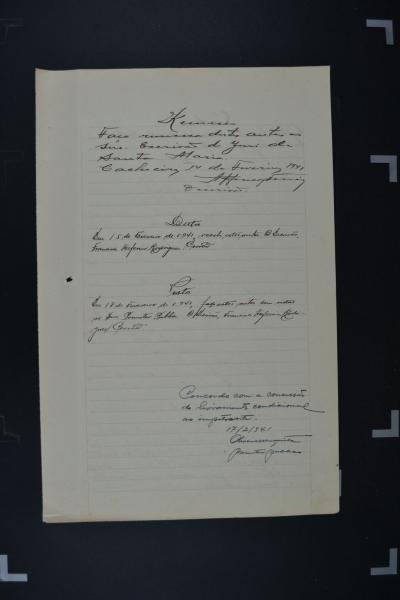 Remessa
Faço remessa destes autos ao
Snr. Escrivão do Jury de
Santa Maria.
Cachoeira, 14 de Fevereiro 1941
Escrivão.
Data
Em 15 de Fevereiro de 1941, recebi estes autos. O Escrivão,
Vista
Em 17 de Fevereiro de 1941, faço estes autos com vista
ao Promotor Publico. O Escrivão,
Concordo com a concessão
do livramento condicional
ao impetrante.
17/2/941